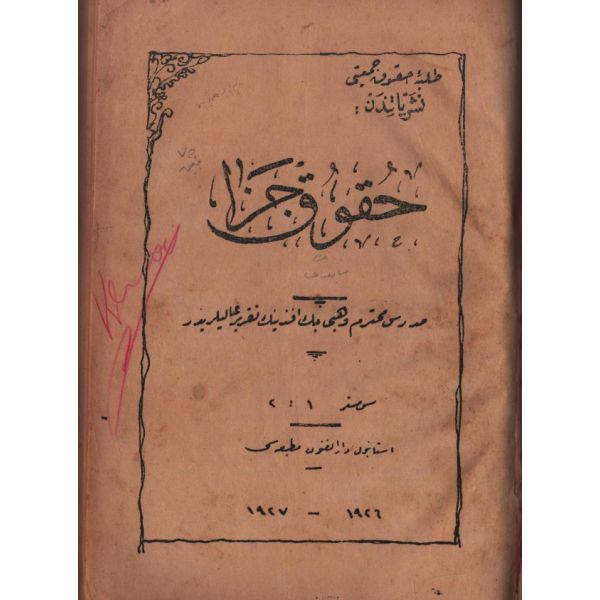 طلبهٔ حقوق جمعیتی
نشریاتندن :
حقوق جزا
مدرس محترم وهبی بك افندینك تقریر عالیلریدر
سومستر ١ : ٢
استانبول دار الفنون مطبعه‌سی
١٩٢٦ — ١٩٢٧